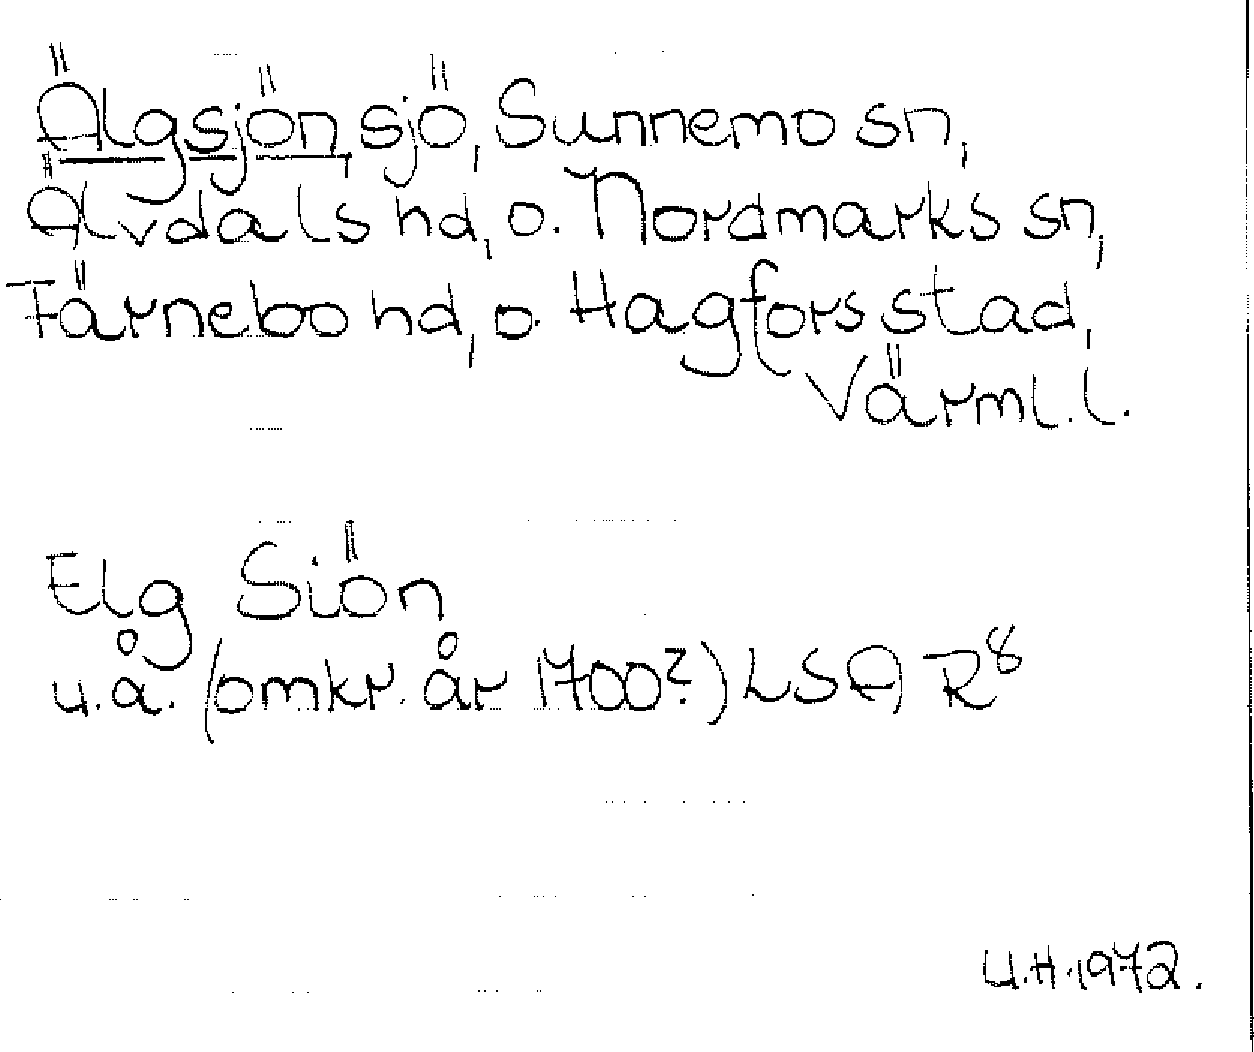 Älgsjön, sjö, Sunnemo sn,
Älvdals hd, o. Nordmarks sn,
Färnebo hd, o. Hagfors stad,
Värml. l.
Elg Siön
u.å. (omkr. år 1700?) LSA R8
U.H. 1972.